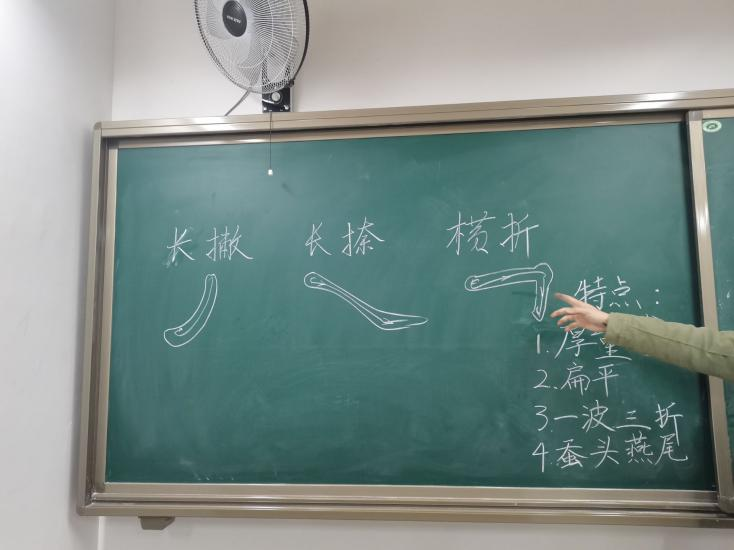 长撇 长捺 横折
特点:
1.厚重
2.扁平
3.一波三折
4.蚕头燕尾